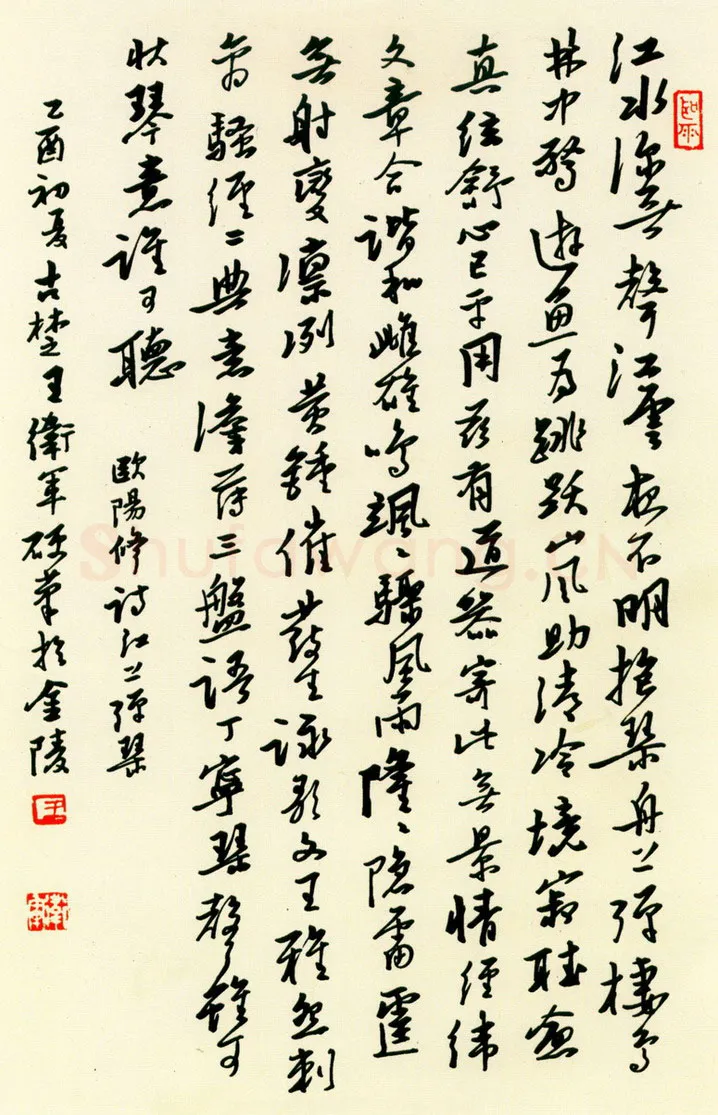 江水深無聲江雲夜不明抱琴舟上彈棲鳥
林中驚遊魚为跳跃山风助清冷境寂聴愈
真弦舒心已平用兹有道器寄此無景情經緯
文章合諧和雌雄鳴颯々驟風雨隆々隐雷霆
無射變凛冽黄鍾催發生詠歌文王雅怨刺
离騷經二典意澹薄三盤語丁寧琴聲雖可
状琴意誰可聽
歐陽修詩江上彈琴
乙酉初夏古楚王衛軍硯筆於金陵
Shufawang.CN